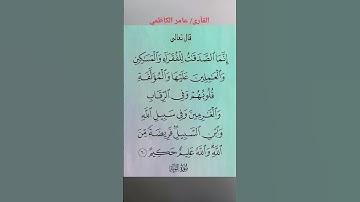 القارئ/ عامر الكاظمي
قال تعالى
إِنَّمَا الصَّدَقَٰتُ لِلْفُقَرَآءِ وَالْمَسَٰكِينِ
وَالْعَٰمِلِينَ عَلَيْهَا وَالْمُؤَلَّفَةِ
قُلُوبُهُمْ وَفِي الرِّقَابِ
وَالْغَٰرِمِينَ وَفِي سَبِيلِ اللَّهِ
وَابْنِ السَّبِيلِ فَرِيضَةً مِّنَ
اللَّهِ وَاللَّهُ عَلِيمٌ حَكِيمٌ ٦٠